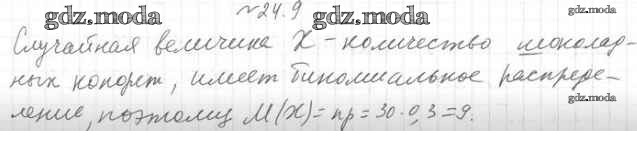 №24.9
gdz.moda gdz.moda
gdz.moda
Случайная величина X - количество шоколад-
ных конфет, имеет биномиальное распреде-
gdz.moda
ление, поэтому M(X) = np = 30·0,3 = 9.